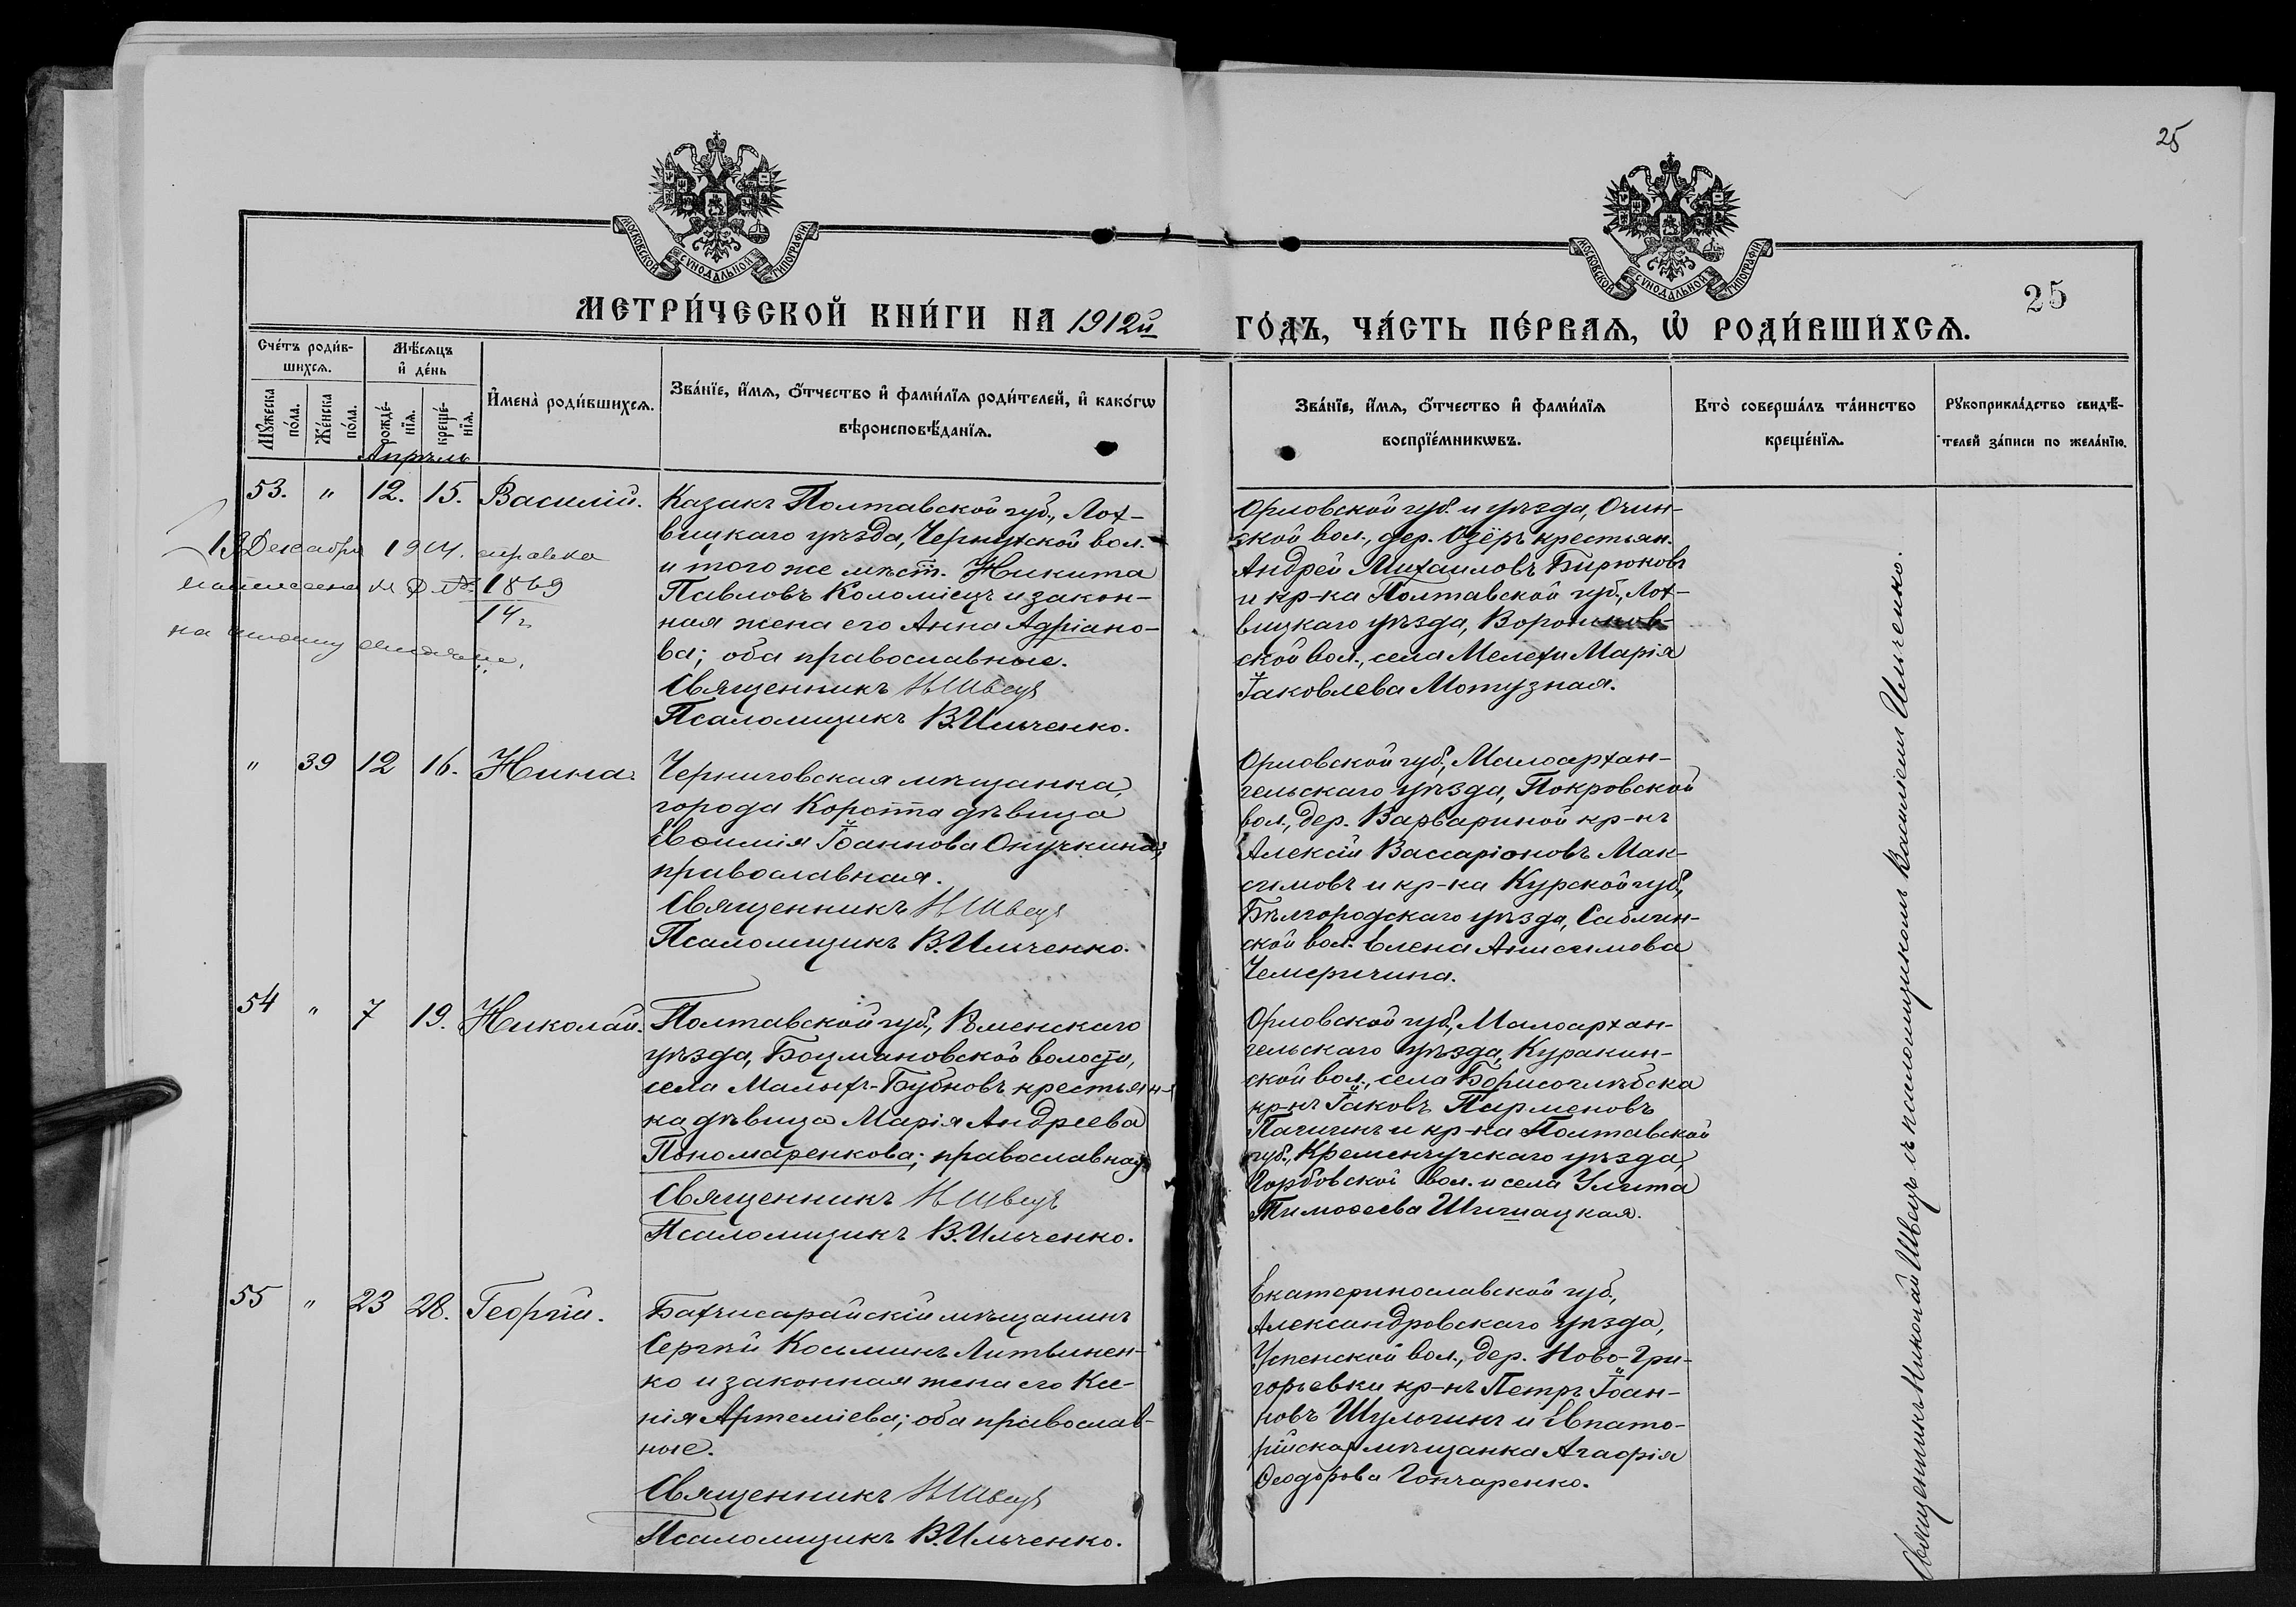 25
МОСКОВСКОЙ СѴНОДАЛЬНОЙ ТИПОГРАФІИ
МОСКОВСКОЙ СѴНОДАЛЬНОЙ ТИПОГРАФІИ
25
МЕТРИ́ЧЕСКОЙ КНИ́ГИ НА 1912й
ГО́ДЪ, ЧА́СТЬ ПЕ́РВАѦ, Ѡ҆ РОДИ́ВШИХСѦ.
Сче́тъ роди́в-
шихсѧ.
Мꙋ́жеска по́ла.
Же́нска по́ла.
Мѣ́сѧцъ
и҆ де́нь
рожде́-
нїѧ.
креще́-
нїѧ.
И҆мена̀ роди́вшихсѧ.
Зва́нїе, и҆́мѧ, ѻ҆́тчество и҆ фами́лїѧ роди́телей, и҆ како́гѡ
вѣроисповѣ́данїѧ.
Зва́нїе, и҆́мѧ, ѻ҆́тчество и҆ фами́лїѧ
воспрїе́мникѡвъ.
Кто̀ соверша́лъ та́инство
креще́нїѧ.
Рꙋкоприкла́дство свидѣ́-
телей за́писи по жела́нїю.
Апрѣль
53. " 12. 15. Василій.
Казакъ Полтавской губ., Лох-
вицкаго уѣзда, Чернухской вол.
и того же мѣст. Никита
Павловъ Коломіецъ и закон-
ная жена его Анна Адріано-
ва; оба православные.
Священникъ Н Швецъ
Псаломщикъ В. Ильченко.
Орловской губ. и уѣзда,
ской вол., дер. Озёръ крестьян.
Андрей Михаиловъ Бирюковъ
и кр-ка Полтавской губ., Лох-
вицкаго уѣзда,
ской вол., села Мелехи Марія
Іаковлева Мотузная.
13 Декабря 1914. справка
№ 1869
14 г.
на
" 39 12 16. Нина.
Черниговская мѣщанка,
города Коропа дѣвица
Евѳимія Іоаннова Онучкина,
православная.
Священникъ Н Швецъ
Псаломщикъ В. Ильченко.
Орловской губ., Малоархан-
гельскаго уѣзда, Покровской
вол., дер. Варвариной кр-нъ
Алексій Вассаріоновъ Мак-
симовъ и кр-ка Курской губ.,
Бѣлгородскаго уѣзда, Саблин-
ской вол. Елена Анисимова
Чемеричина.
54 " 7 19. Николай.
Полтавской губ., Роменскаго
уѣзда, Боцмановской волости,
села Малыхъ-Бубновъ крестьян-
ка дѣвица Марія Андреева
Пономаренкова; православная
Священникъ Н Швецъ
Псаломщикъ В. Ильченко.
Орловской губ., Малоархан-
гельскаго уѣзда, Куракин-
ской вол., села Борисоглѣбска
кр-нъ Іаковъ Парменовъ
Пачичинъ и кр-ка Полтавской
губ., Кременчугскаго уѣзда,
Горбовской вол. и села Улита
Тимоѳеева Шишацкая.
55 " 23 28. Георгій.
Бахчисарайскій мѣщанинъ
Сергѣй Косьминъ Литвинен-
ко и законная жена его Ксе-
нія Артеміева; оба православ-
ные.
Священникъ Н Швецъ
Псаломщикъ В. Ильченко.
Екатеринославской губ.,
Александровскаго уѣзда,
Успенской вол., дер. Ново-Гри-
горьевки кр-нъ Петръ Іоан-
новъ Шульгинъ и Евпато-
рійская мѣщанка Агафія
Ѳеодорова Гончаренко.
Священникъ Николай Швецъ съ псаломщикомъ Василіемъ Ильченко.